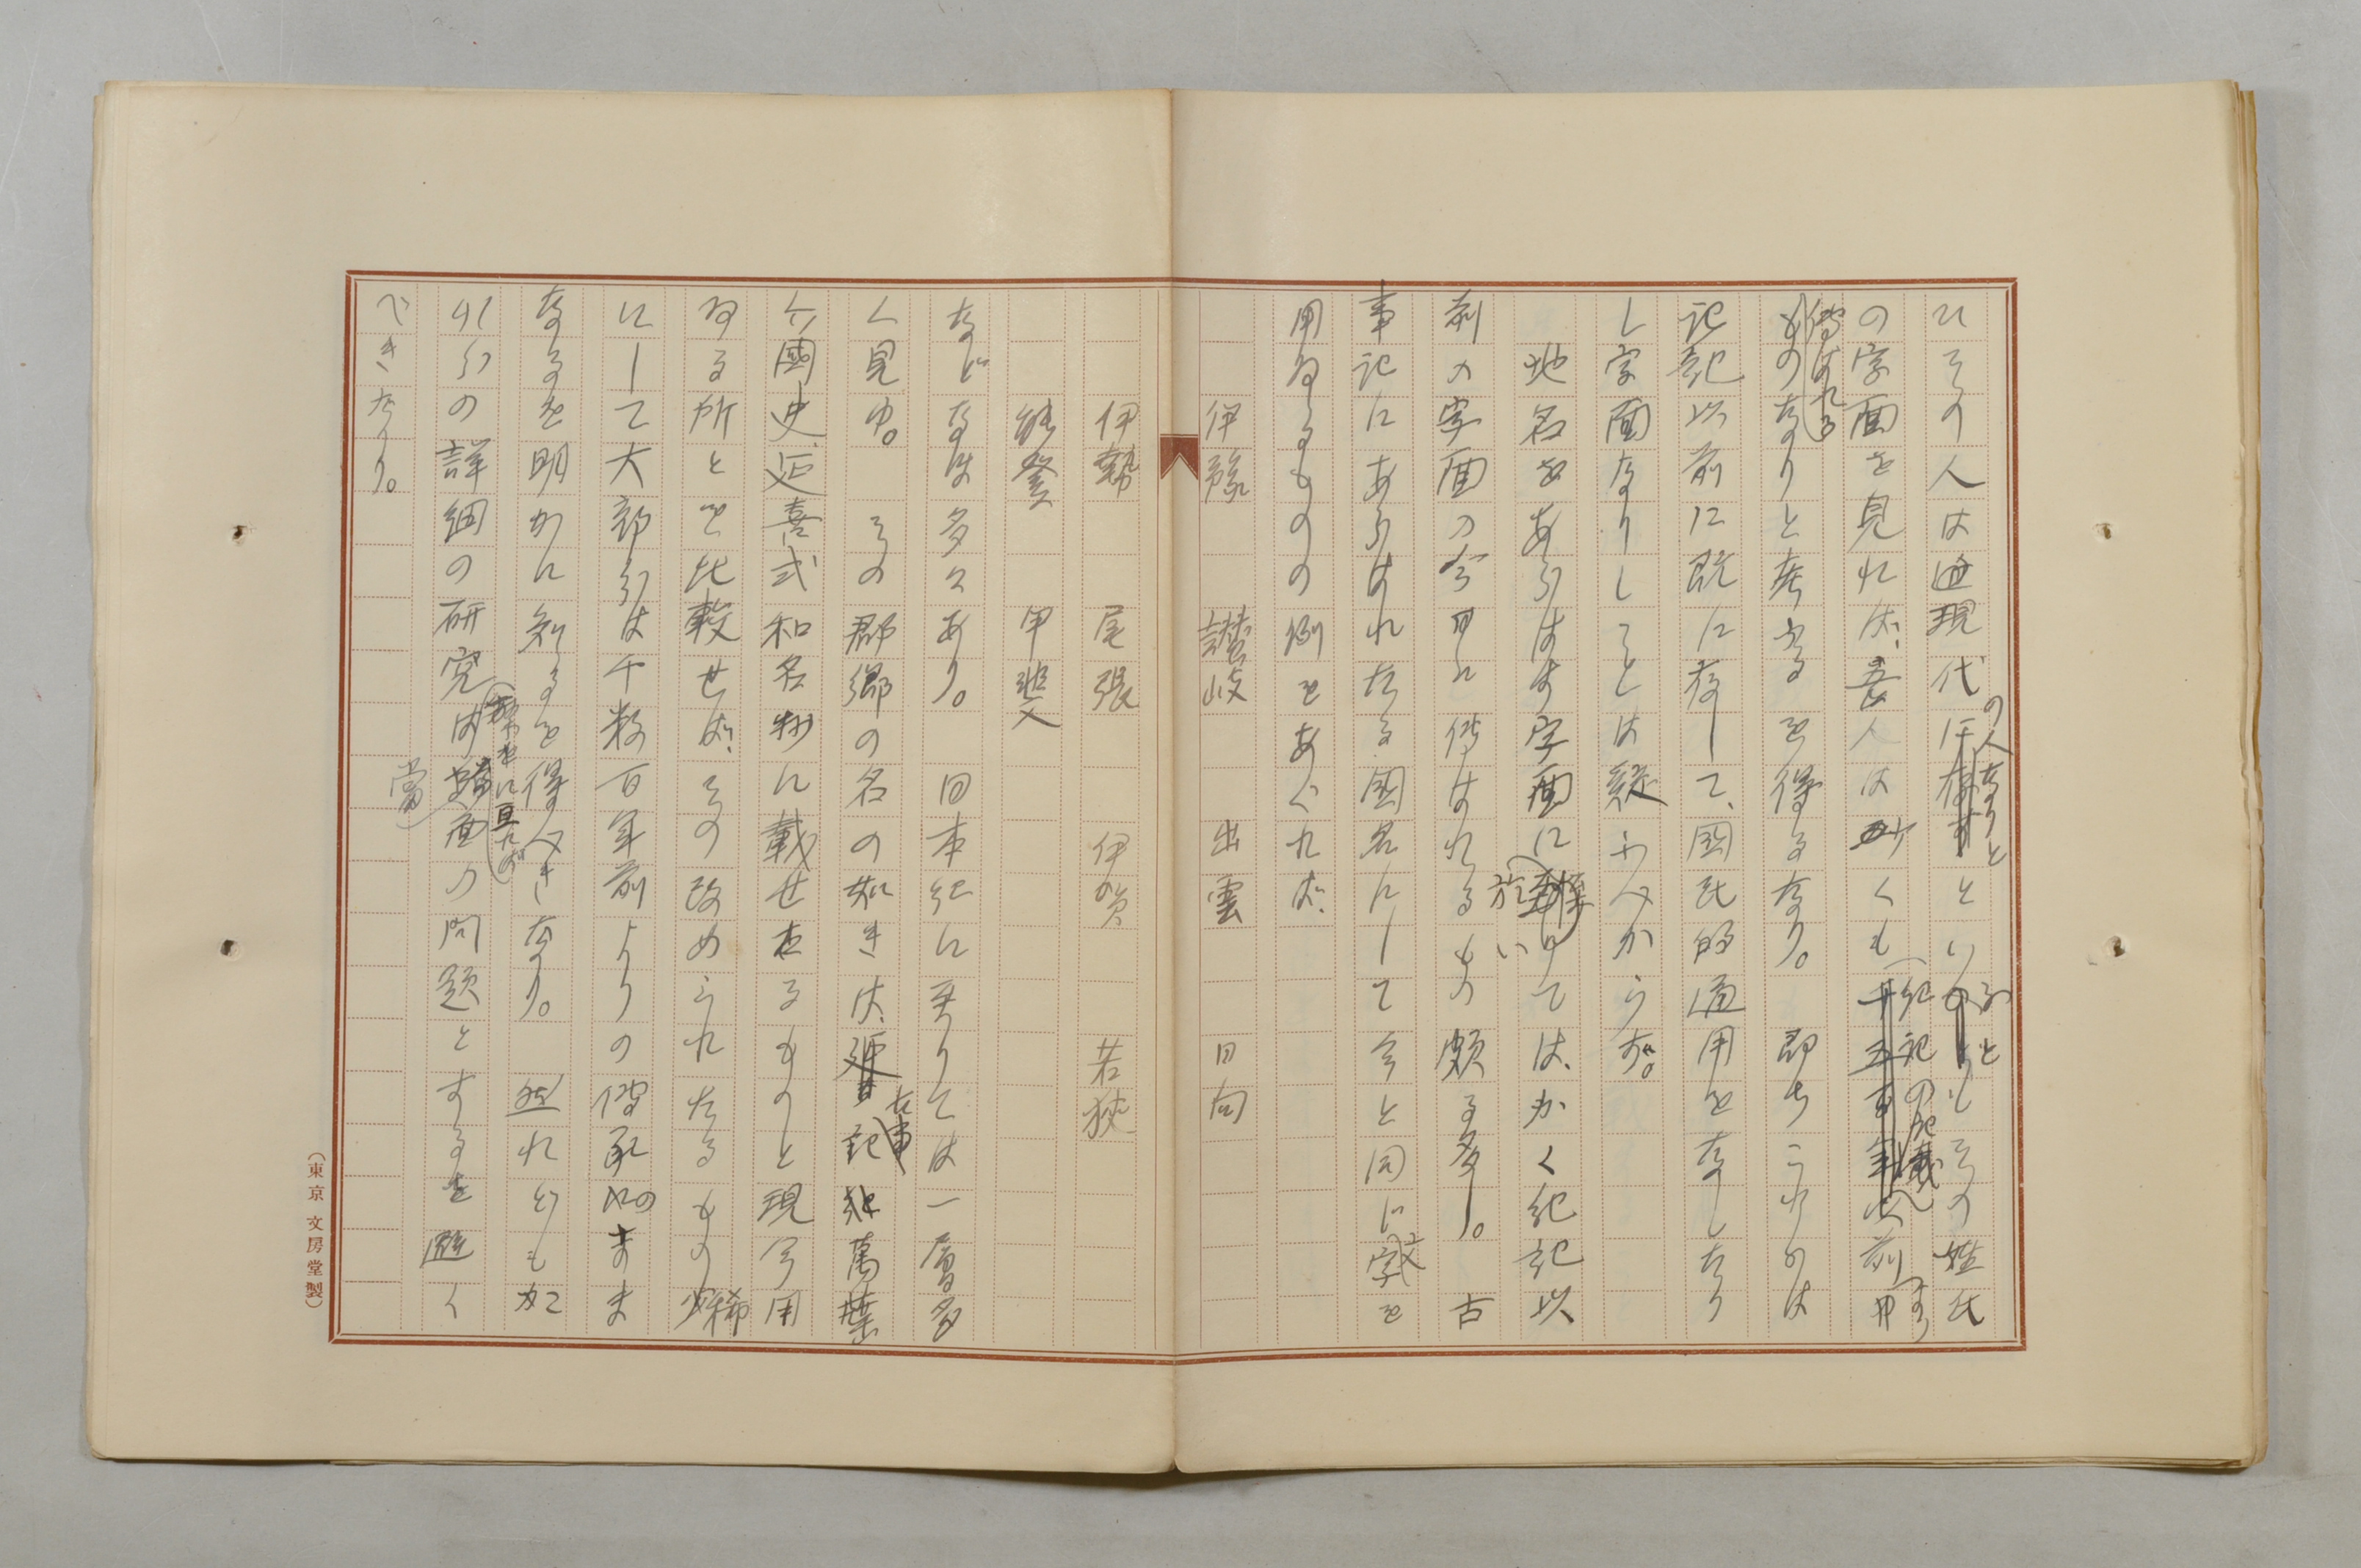 ひその人は近現代の人なりといふともその姓氏
の字面を見れば、吾人は少くも紀記の記載以前より
傳はれるものなりと考ふるを得るなり。即ちこれらは
記紀以前に既に存して、國民的通用をなしたり
し字面なりしことは疑ふべからず。
地名をあらはす字面に於いては、かく紀記以
前の字面の今日に傳はれるもの頗る多し。古
事記にあらはれたる國名にして今と同じ文字を
用ゐるものの例をあぐれば、
伊豫　讃岐　出雲　日向
伊勢　尾張　伊賀　若狹
能登　甲斐
などなほ多々あり。日本紀に至りては一層多
く見ゆ。その郡郷の名の如きは、古事記萬葉
六國史、延喜式和名抄に載せたるものと現今用
ゐる所とを比較せば、その改められたるもの稀
にして大部分は千數百年前よりの傳承のまま
なるを明かに知るを得べきなり。然れども如
此らの詳細の研究は繁に亘れば當面の問題とするを避く
べきなり。
（東京 文房堂製）